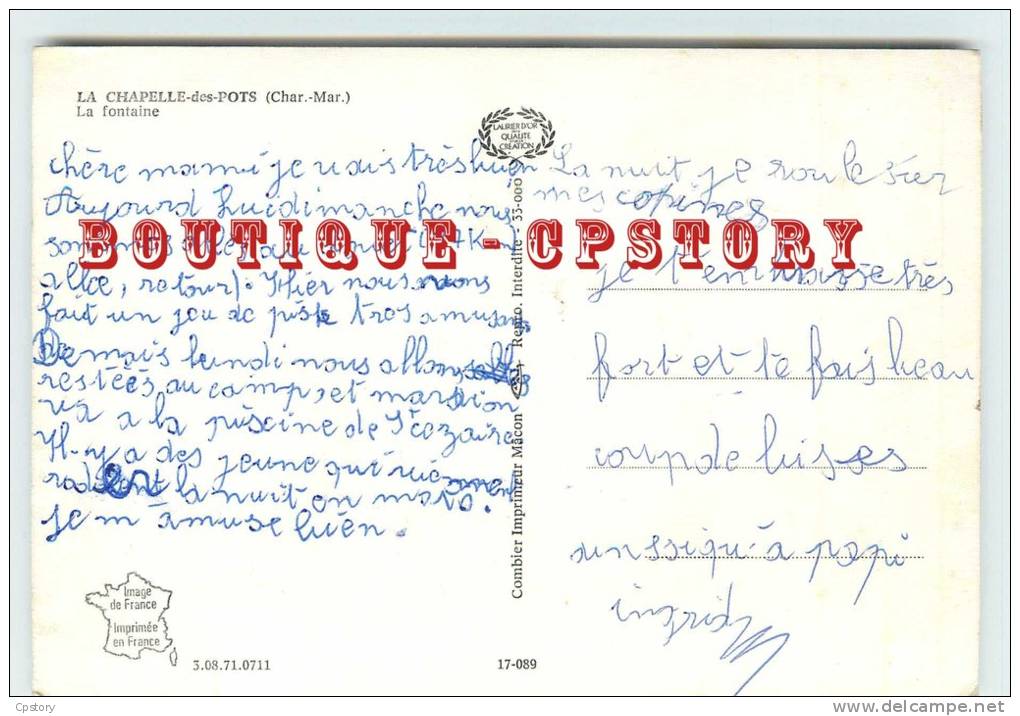 LA CHAPELLE-des-POTS (Char.-Mar.)
La fontaine
LAURIER D'OR
QUALITÉ
CRÉATION
chère mami je vais très bien
Aujourd huidimanche nous
sommes
BOUTIQUE - CPSTORY
allée, retour). Hier nous avons
fait un jeu de piste tres amusan
Demais lundi nous allons
restéés au camp, et mardi on
va a la piscine de St cezaire
Il-y a des jeune qui viénnent
la nuit en moto.
je m'amuse bién.
La nuit je
mes copines
je t'embrasse très
fort et te fais beau
coup de bises
aussi qu'à papi
ingrid
Combier Imprimeur Mâcon
Repro. Interdite - 33-000
Image
de France
Imprimée
en France
3.08.71.0711
17-089
Cpstory
www.delcampe.net